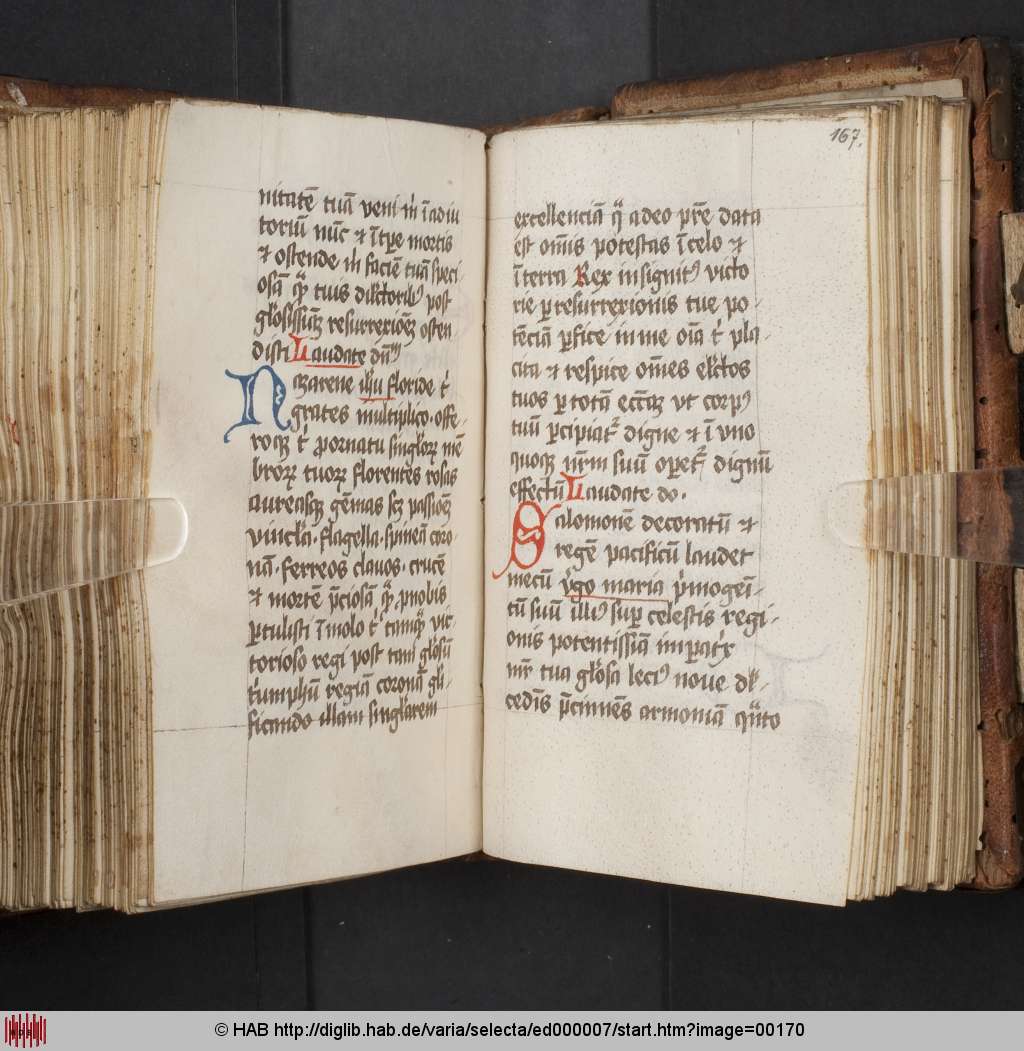 nitatē tuā veni m̍ ī adiu
toriū nūc et ī tp̄e mortis
et ostende m̍ faciē tuā speci-
osā quā tuis dilc̄torib⁹ post
gl̓osissimā resurrexiōeꝫ osten
disti Laudate dn̄m
Nazarene ih̄u floride t̓
grates multiplico · offe-
roqꝫ t̓ p̱ ornatu singl̓oꝝ mē
broꝝ tuoꝝ florentes rosas
aureasqꝫ gēmas scꝫ passiōeꝫ
vincl̓a · flagella · spineā coro
nā · ferreos clavos · crucē
et mortē p̄ciosā quā p̱ nobis
ꝑtulisti ī molo t̓ tāquā vic
torioso regi post tam gl̓osū
t̓umphū regiā coronā gl̓i-
ficando illam singl̓arem
167.
excellenciā qua a deo pr̄e data
est om̄is potestas ī celo et
ī terra Rex insignit⁹ victo
rie ꝑ resurrexionis tue po-
tēciā ꝑfice in me oīa t̓ pla-
cita et respice om̄es elc̄tos
tuos ꝑ totā eccl̄iaꝫ vt corp⁹
tuū ꝑcipiat᷑ digne et ī vno
quoqꝫ nr̄m suū opet᷑ dignū
effectū Laudate do ·
Salomonē decoratū et
regē pacificū laudet
mecū v̓go maria p̓mogeni-
tū suū illi⁹ suꝑ celestis regi-
onis potentissimā impat̓x
mr̄ tua gl̓osa leci⁹ noue dl̓-
cedīs p̄cinnēs armoniā quāto
© HAB http://diglib.hab.de/varia/selecta/ed000007/start.htm?image=00170